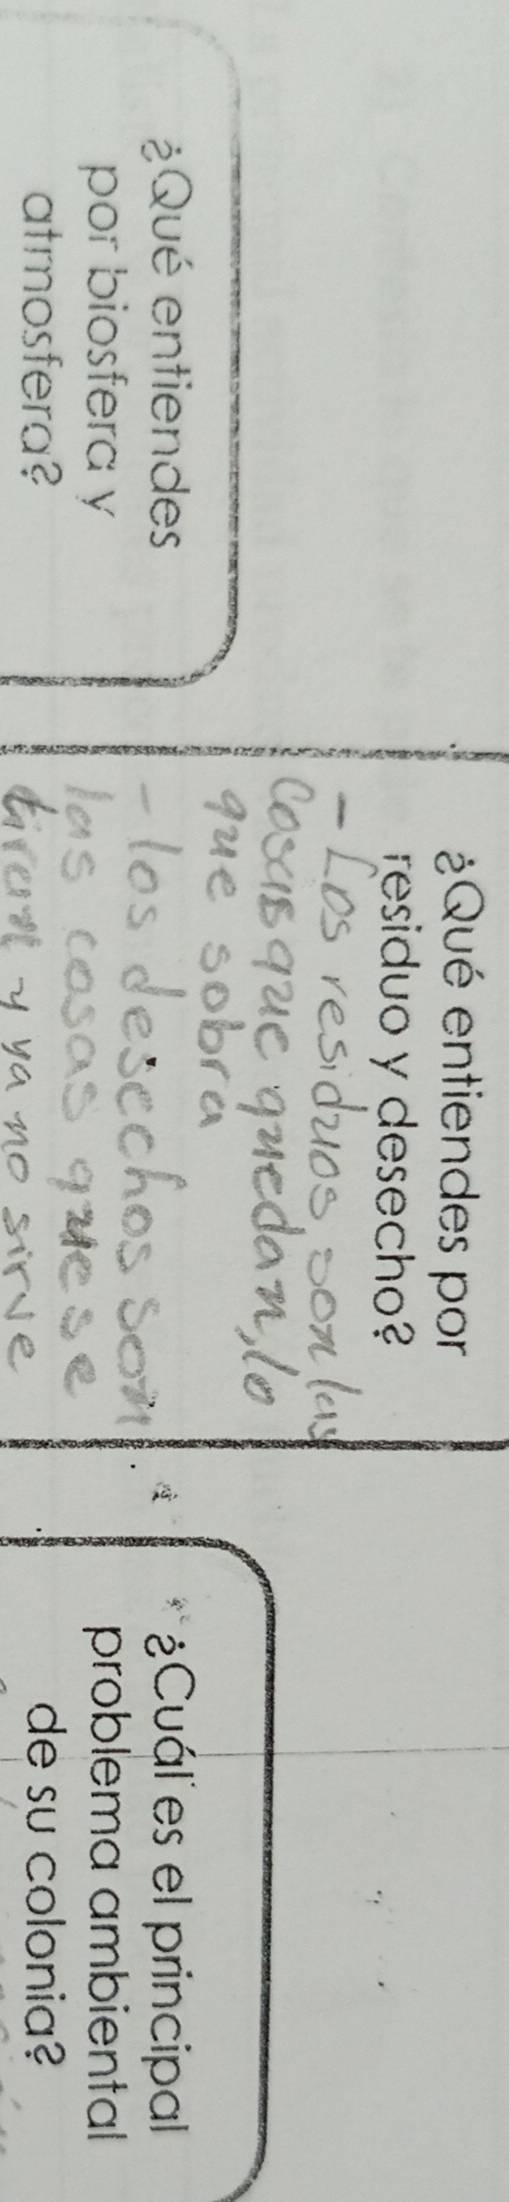 ¿Qué entiendes
por biosfera y
atmosfera?
¿Qué entiendes por
residuo y desecho?
- Los residuos son las
cosas que quedan, lo
que sobra
- los desechos son
las cosas que se
tiran y ya no sirve
¿Cuál es el principal
problema ambiental
de su colonia?